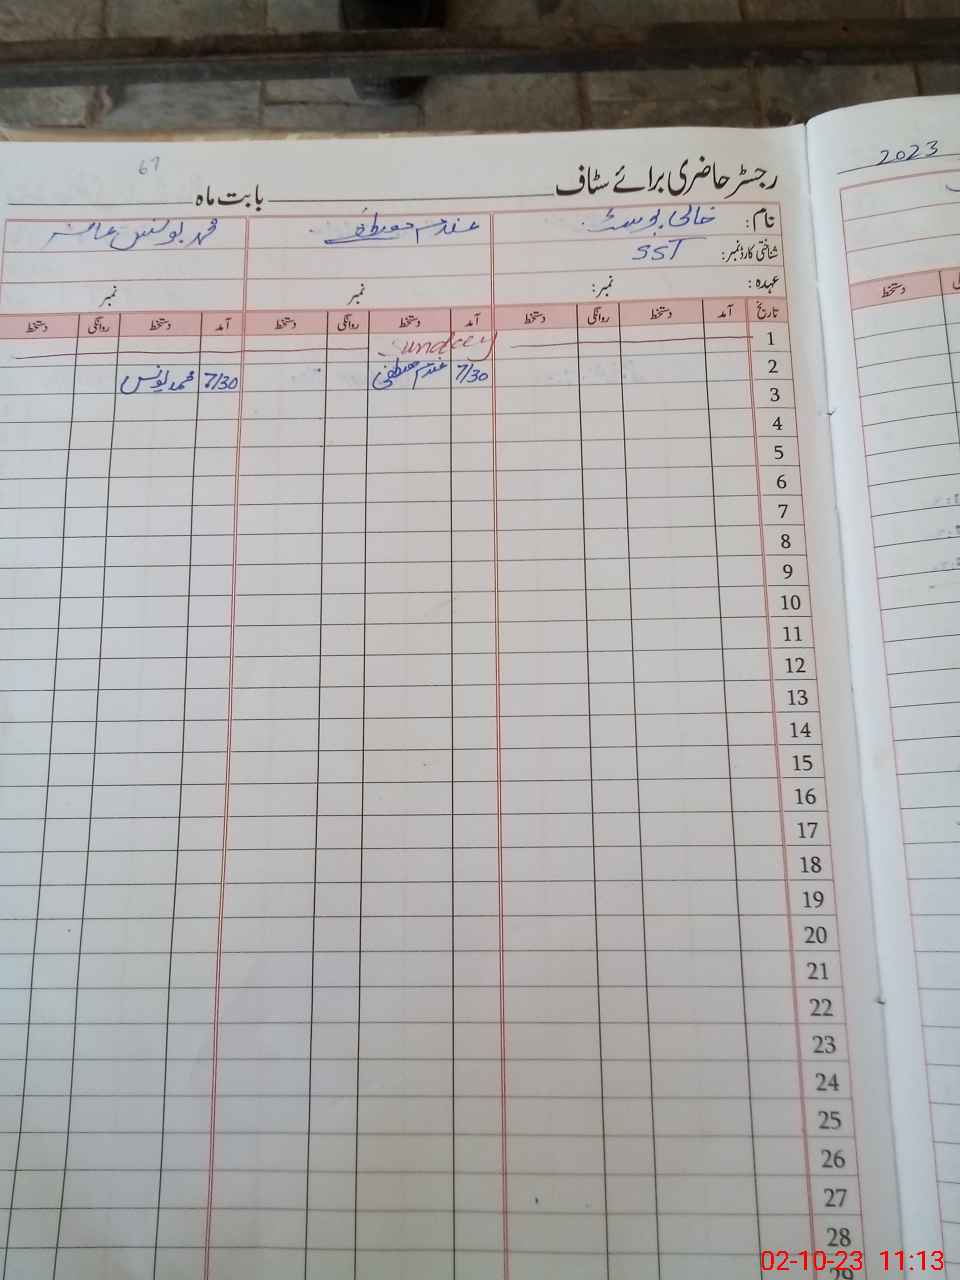 67
2023
رجسٹر حاضری برائے سٹاف بابت ماہ
نام: خالی پوسٹ غلام مصطفیٰ محمد یونس
شناختی کارڈ نمبر: SST
عہدہ: نمبر: نمبر نمبر
تاریخ آمد دستخط روانگی دستخط آمد دستخط روانگی دستخط آمد دستخط روانگی دستخط
دستخط
1 Sunday
2 7/30 غلام مصطفیٰ 7/30 محمد یونس
3
4
5
6
7
8
9
10
11
12
13
14
15
16
17
18
19
20
21
22
23
24
25
26
27
28
29
02-10-23 11:13